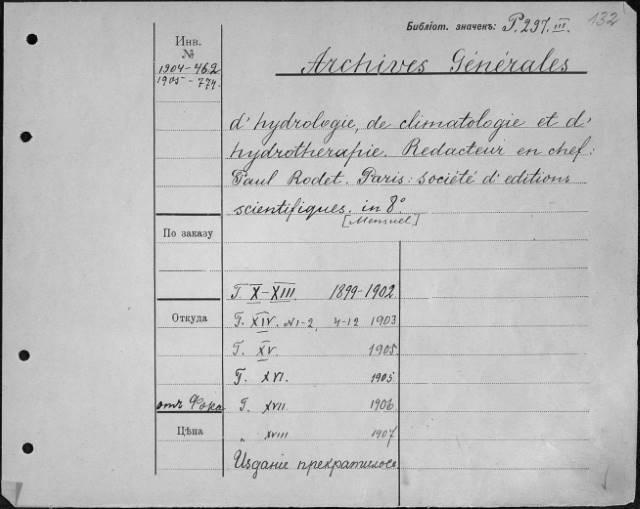 Библіот. значекъ: P. 297. III.
132
Инв.
№
1904-462
1905-774.
Archives Générales
d'hydrologie, de climatologie et d'
hydrothérapie. Redacteur en chef:
Paul Rodet. Paris: société d'editions
scientifiques. in 8°
[Mensuel]
По заказу
T. X-XIII 1899-1902
Откуда
T. XIV. N1-2, 4-12 1903
T. XV. 1905
T. XVI. 1905
отъ Фока
T. XVII 1906
Цѣна
" XVIII 1907
Изданіе прекратилось